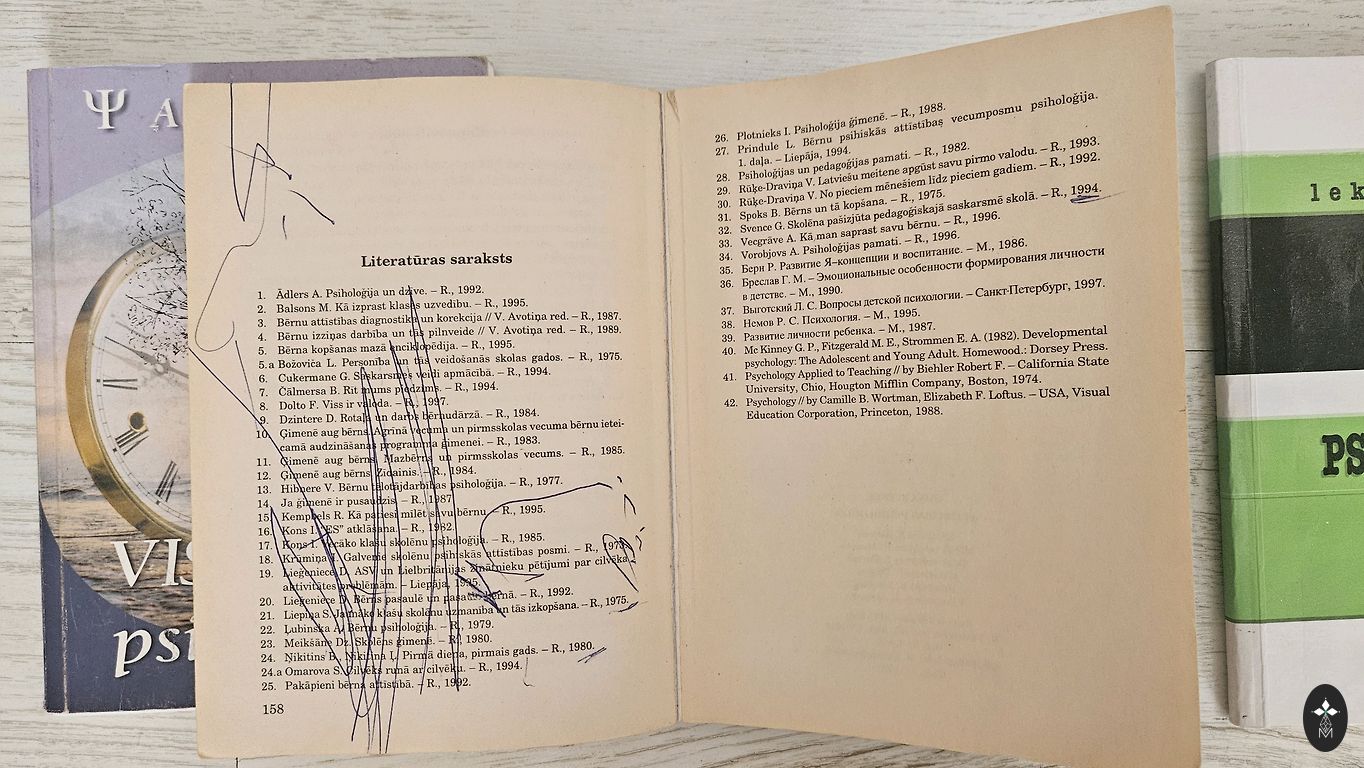 Ψ A
VIS
psi
Literatūras saraksts
1. Ādlers A. Psiholoģija un dzīve. – R., 1992.
2. Balsons M. Kā izprast klases uzvedību. – R., 1995.
3. Bērnu attīstības diagnostika un korekcija // V. Avotiņa red. – R., 1987.
4. Bērnu izziņas darbība un tās pilnveide // V. Avotiņa red. – R., 1989.
5. Bērna kopšanas mazā enciklopēdija. – R., 1995.
5.a Božoviča L. Personība un tās veidošanās skolas gados. – R., 1975.
6. Cukermane G. Saskarsmes veidi apmācībā. – R., 1994.
7. Čālmersa B. Rit mums piedzims. – R., 1994.
8. Dolto F. Viss ir valoda. – R., 1997.
9. Dzintere D. Rotaļa un darbs bērnudārzā. – R., 1984.
10. Ģimenē aug bērns. Agrīnā vecuma un pirmsskolas vecuma bērnu ietei-
camā audzināšanas programma ģimenei. – R., 1983.
11. Ģimenē aug bērns. Mazbērns un pirmsskolas vecums. – R., 1985.
12. Ģimenē aug bērns. Zīdainis. – R., 1984.
13. Hibnere V. Bērnu tēlotājdarbības psiholoģija. – R., 1977.
14. Ja ģimenē ir pusaudzis. – R., 1987
15. Kempbels R. Kā patiesi milēt savu bērnu. – R., 1995.
16. Kons I. „ES” atklāšana. – R., 1982.
17. Kons I. Vecāko klašu skolēnu psiholoģija. – R., 1985.
18. Krūmiņa Galvenie skolēnu psihiskās attīstības posmi. – R.,
19. Liegeniece D. ASV un Lielbritānijas zinātnieku pētījumi par cilvēka
aktivitātes problēmām. – Liepāja, 1995.
20. Liegeniece D. Bērns pasaulē un pasaule bērnā. – R., 1992.
21. Liepiņa S. Jaunāko klašu skolēnu uzmanība un tās izkopšana. – R., 1975.
22. Ļubinska A. Bērnu psiholoģija. – R., 1979.
23. Meikšāne Dz. Skolēns ģimenē. – R., 1980.
24. Ņikitins B., Ņikitina L. Pirmā diena, pirmais gads. – R., 1980.
24.a Omarova S. Cilvēks runā ar cilvēku. – R., 1994.
25. Pakāpieni bērna attīstībā. – R., 1992.
158
26. Plotnieks I. Psiholoģija ģimenē. – R., 1988.
27. Prindule L. Bērnu psihiskās attīstības vecumposmu psiholoģija.
1. daļa. – Liepāja, 1994.
28. Psiholoģijas un pedagoģijas pamati. – R., 1982.
29. Rūķe-Draviņa V. Latviešu meitene apgūst savu pirmo valodu. – R., 1993.
30. Rūķe-Draviņa V. No pieciem mēnešiem līdz pieciem gadiem. – R., 1992.
31. Spoks B. Bērns un tā kopšana. – R., 1975.
32. Svence G. Skolēna pašizjūta pedagoģiskajā saskarsmē skolā. – R., 1994.
33. Vecgrāve A. Kā man saprast savu bērnu. – R., 1996.
34. Vorobjovs A. Psiholoģijas pamati. – R., 1996.
35. Берн Р. Развитие Я–концепции и воспитание. – М., 1986.
36. Бреслав Г. М. – Эмоциональные особенности формирования личности
в детстве. – М., 1990.
37. Выготский Л. С. Вопросы детской психологии. – Санкт-Петербург, 1997.
38. Немов Р. С. Психология. – М., 1995.
39. Развитие личности ребенка. – М., 1987.
40. Mc Kinney G. P., Fitzgerald M. E., Strommen E. A. (1982). Developmental
psychology: The Adolescent and Young Adult. Homewood.: Dorsey Press.
41. Psychology Applied to Teaching // by Biehler Robert F. – California State
University, Chio, Hougton Mifflin Company, Boston, 1974.
42. Psychology // by Camille B. Wortman, Elizabeth F. Loftus. – USA, Visual
Education Corporation, Princeton, 1988.
lek
PS
M